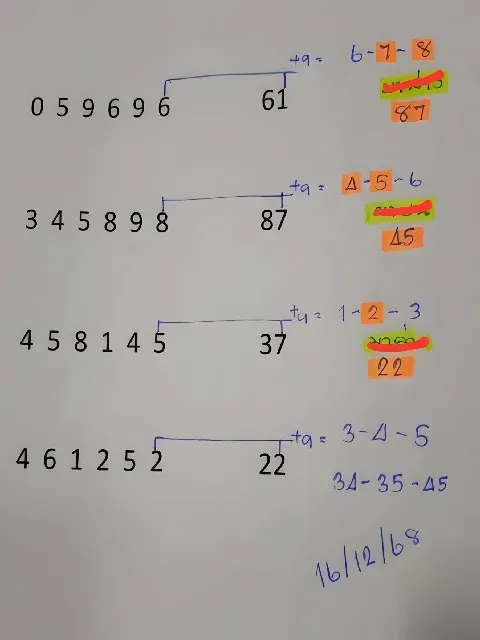 +9 = 6-7-8
0 5 9 6 9 6 61
87
+9 = 4-5-6
3 4 5 8 9 8 87
45
+9 = 1-2-3
4 5 8 1 4 5 37
22
+9 = 3-4-5
4 6 1 2 5 2 22
34-35-45
16/12/68